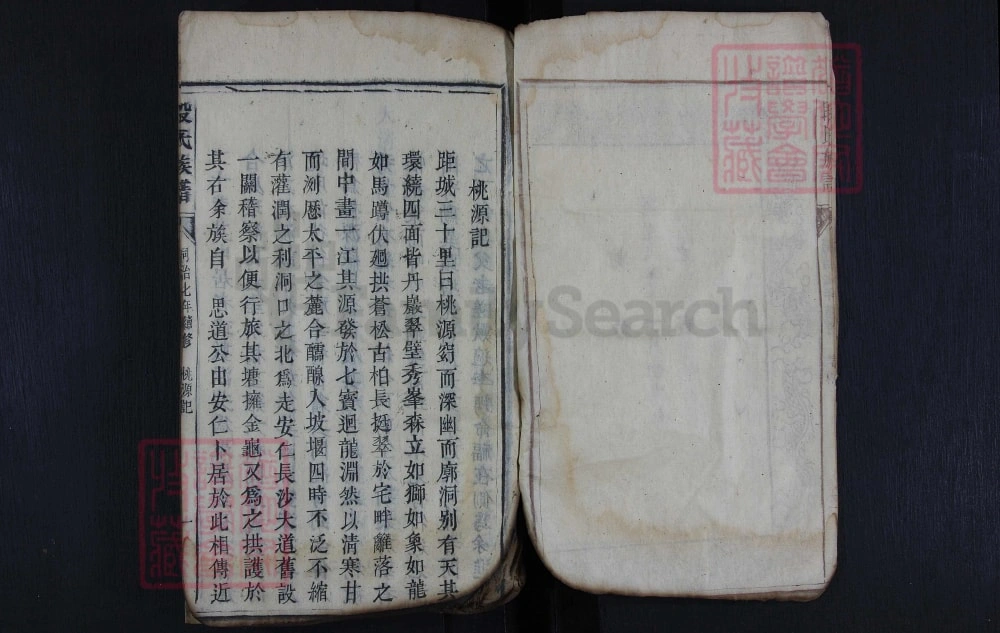 桃源記
距城三十里曰桃源窈而深幽而廓洞別有天其
環繞四面皆丹巖翠壁秀峯森立如獅如象如龍
如馬蹲伏廻拱蒼松古柏長挺翠於宅畔籬落之
間中畫一江其源發於七寶迴龍淵然以清寒甘
而洌厯太平之麓合醽醁入坡堰四時不泛不縮
有灌潤之利洞口之北爲走安仁長沙大道舊設
一關稽察以便行旅其塘擁金龜又爲之拱護於
其右余族自 思道公由安仁卜居於此相傳近
段氏族譜 同治七年續修 桃源記 一
Search